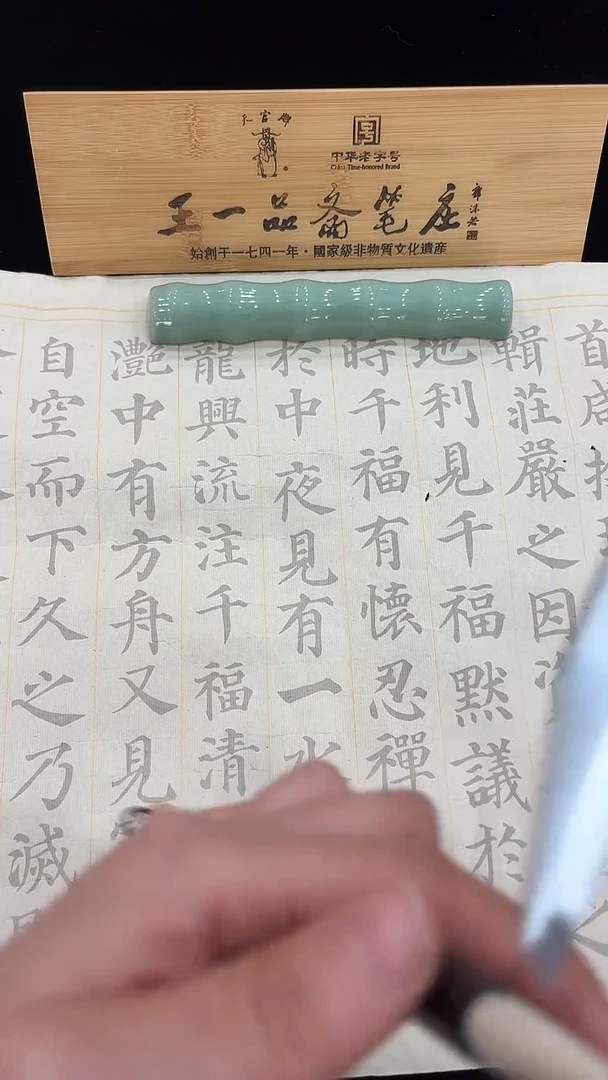 天官牌
中华老字号
China Time-honored Brand
王一品斋笔庄
郭沫若
始創于一七四一年·國家級非物質文化遺産
首咸捨
輯莊嚴之因資
地利見千福默議於
時千福有懷忍禪
於中夜見有一水
龍興流注千福清
灧中有方舟又見
自空而下久之乃滅